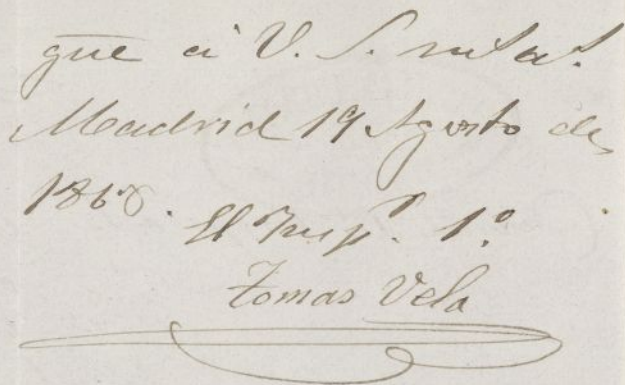 que á V. S. m.s a.s
Madrid 19 Agosto de
1868.
El Insp.r 1.o
Tomas Vela